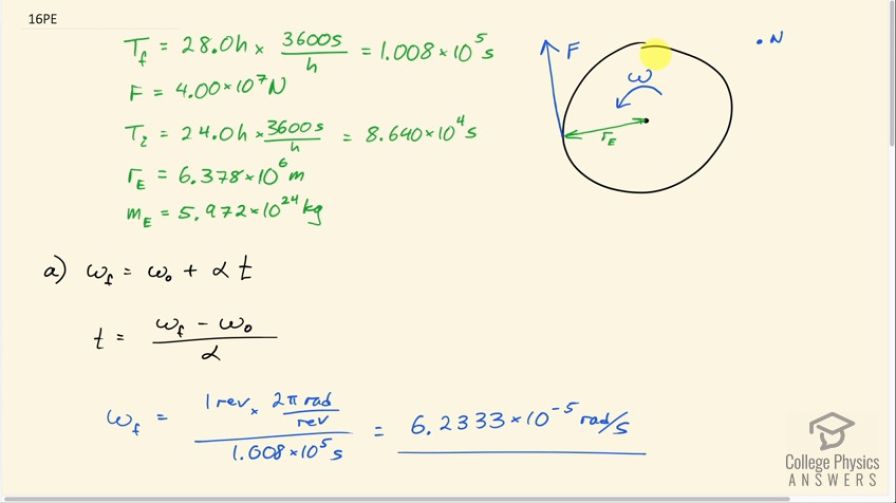 16PE
T_f = 28.0h × 3600s/h = 1.008×10^5 s
F = 4.00×10^7 N
T_i = 24.0h × 3600s/h = 8.640×10^4 s
r_E = 6.378×10^6 m
m_E = 5.972×10^24 kg
F
ω
r_E
• N
a) ω_f = ω_0 + α t
t = (ω_f − ω_0)/α
ω_f = (1 rev × 2π rad/rev)/(1.008×10^5 s) = 6.2333×10^-5 rad/s
College Physics
ANSWERS